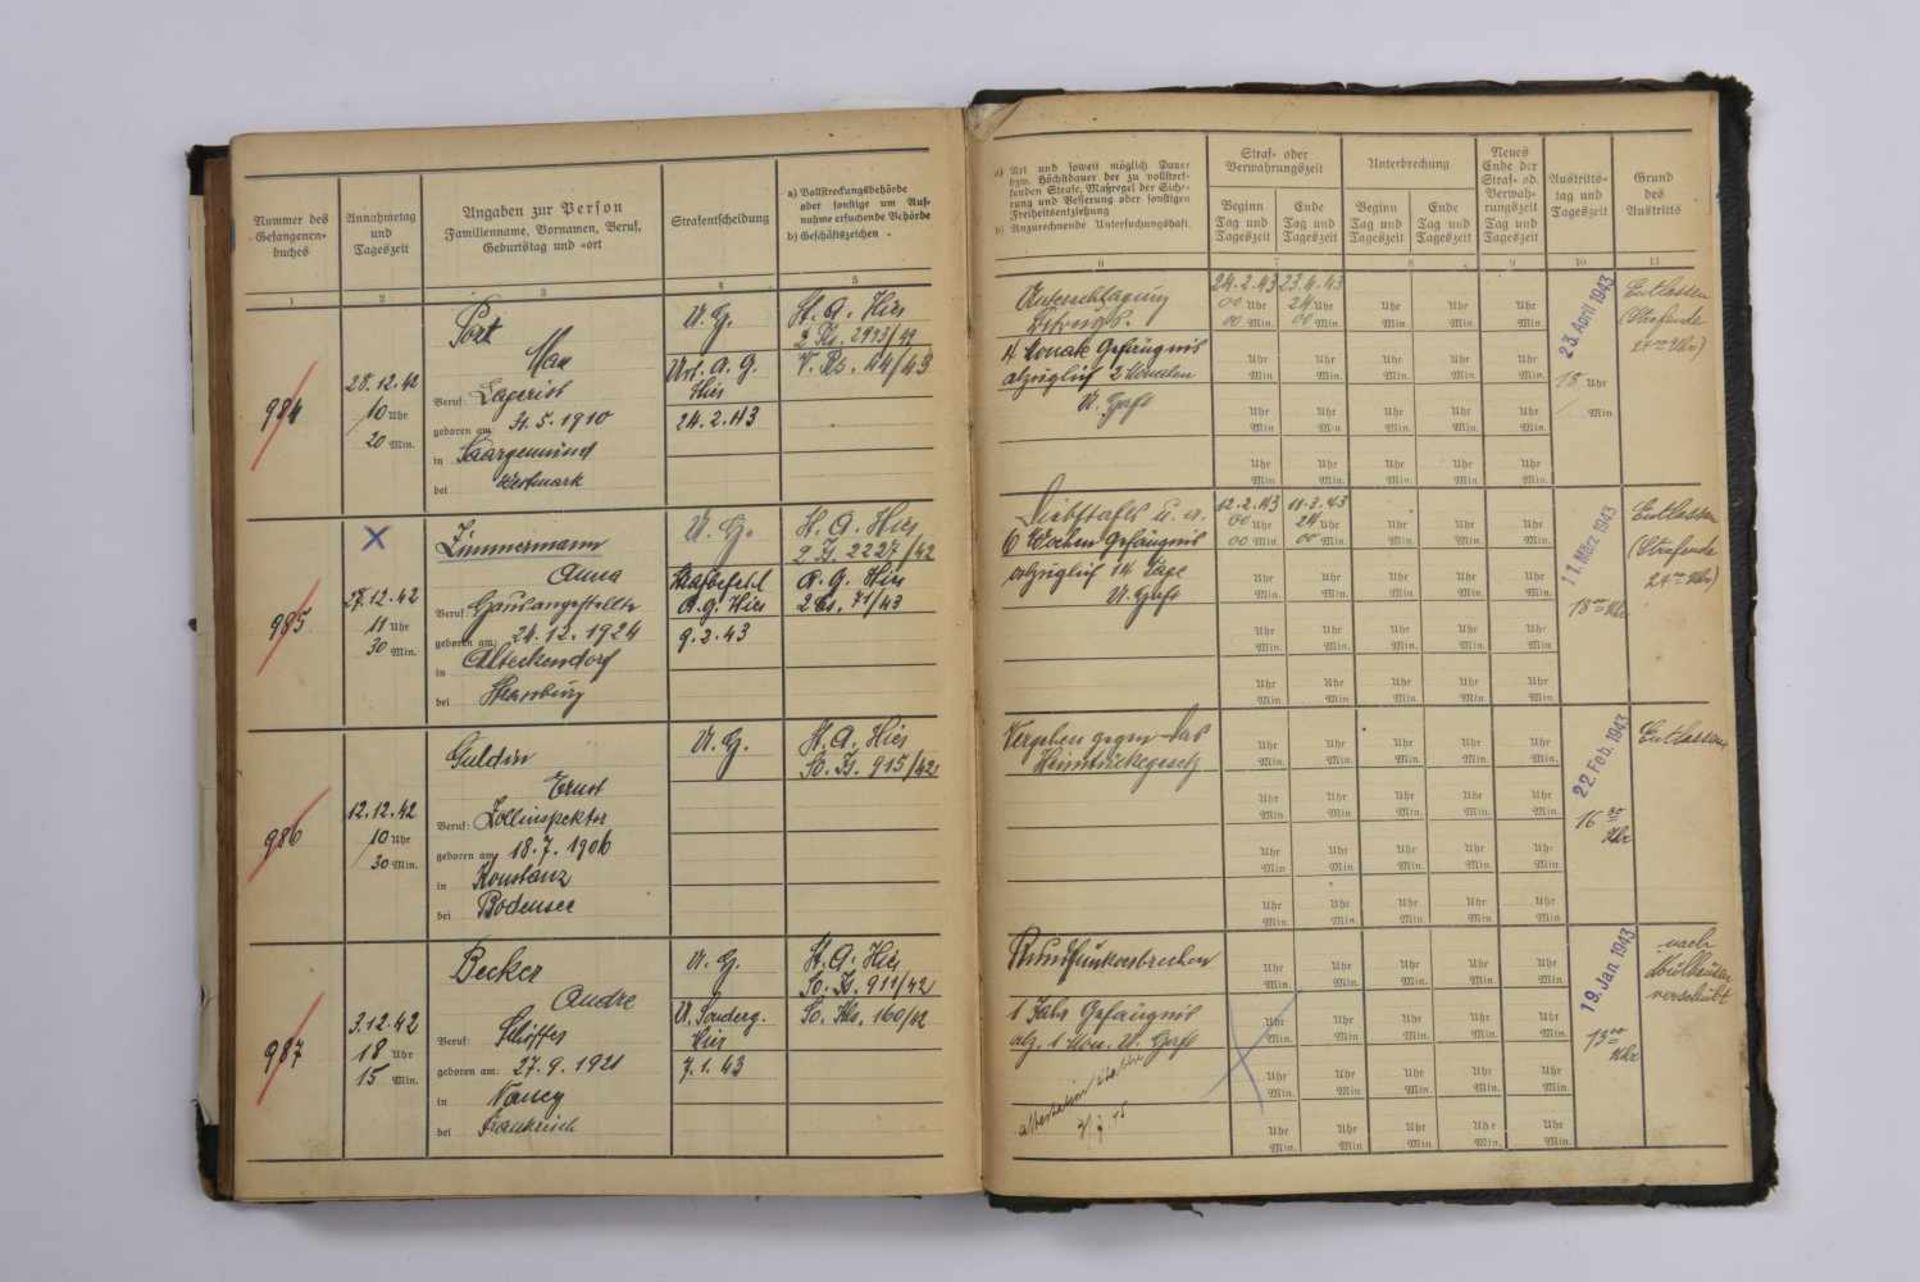 Nummer des
Gefangenen-
buches
Annahmetag
und
Tageszeit
Angaben zur Person
Familienname, Vornamen, Beruf,
Geburtstag und -ort
Strafentscheidung
a) Vollstreckungsbehörde
oder sonstige um Auf-
nahme ersuchende Behörde
b) Geschäftszeichen
1
2
3
4
5
984
28.12.42
10 Uhr
20 Min.
Max
Beruf: Lagerist
geboren am: 31.5.1910
in Saargemünd
bei Westmark
U. G.
Urt. A. G.
Hier
24.2.43
St. A. Hier
V. Rs. 44/43
985
27.12.42
11 Uhr
30 Min.
Zimmermann
Anna
Beruf: Hausangestellte
geboren am: 21.12.1924
in Alteckendorf
bei Strassburg
U. G.
Strafbefehl
A. G. Hier
9.2.43
St. A. Hier
2 Js. 2227/42
A. G. Hier
2 Cs. 71/43
986
12.12.42
10 Uhr
30 Min.
Guldin
Ernst
Beruf: Zollinspektor
geboren am: 18.7.1906
in Konstanz
bei Bodensee
U. G.
St. A. Hier
So. Js. 915/42
987
3.12.42
18 Uhr
15 Min.
Becker
Andre
Beruf: Schiffer
geboren am: 27.9.1921
in Nancy
bei Frankreich
U. G.
U. Sonderg.
Hier
7.1.43
St. A. Hier
So. Js. 911/42
So. Kls. 160/42
a) Art und soweit möglich Dauer
bzw. Höchstdauer der zu vollstrek-
kenden Strafe, Maßregel der Siche-
rung und Besserung oder sonstigen
Freiheitsentziehung
b) Anzurechnende Untersuchungshaft
Straf- oder
Verwahrungszeit
Beginn
Tag und
Tageszeit
Ende
Tag und
Tageszeit
Unterbrechung
Beginn
Tag und
Tageszeit
Ende
Tag und
Tageszeit
Neues
Ende der
Straf- od.
Verwah-
rungszeit
Tag und
Tageszeit
Austritts-
tag und
Tageszeit
Grund
des
Austritts
6
7
8
9
10
11
Unterschlagung
4 Monate Gefängnis
abzüglich 2 Monaten
U. Haft
24.2.43 23.4.43
00 Uhr 24 Uhr
00 Min. 00 Min.
23. April 1943
18 Uhr
Min
Entlassen
(Strafende
24 00 Uhr)
Diebstahls u. a.
6 Wochen Gefängnis
abzüglich 14 Tage
U. Haft
12.2.43 11.3.43
00 Uhr 24 Uhr
00 Min. 00 Min.
11. März 1943
18 00 Uhr
Entlassen
(Strafende
24 00 Uhr)
Vergehen gegen das
Heimtückegesetz
22. Feb. 1943
16 30
Uhr
Entlassen
Rundfunkverbrechen
1 Jahr Gefängnis
abz. 1 Mon. U. Haft
19. Jan. 1943
13 00
Uhr
nach
Mülhausen
verschubt